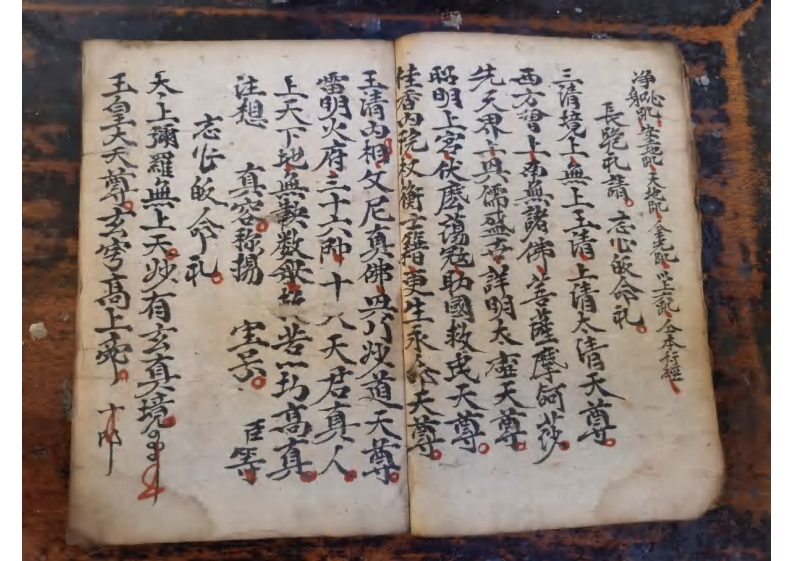 净心咒 安土地咒 天地咒 金光咒 以上咒 合本行經
長跪礼請 志心皈命礼
三清境上無上玉清上清太清天尊
西方會上南無諸佛菩薩摩訶莎
先天界主興儒盛世詳明太虛天尊
昭明上宮伏魔蕩寇助國救民天尊
桂香內院權衡士籍更生永命天尊
玉清內相 尼真佛興行妙道天尊
雷明火府三十六帥十八天君真人
上天下地無鞅數眾 高真
注想 真容稱揚 宝号 臣等
志心皈命礼
太上彌羅無上天妙有玄真境
玉皇大天尊玄穹高上帝 十叩